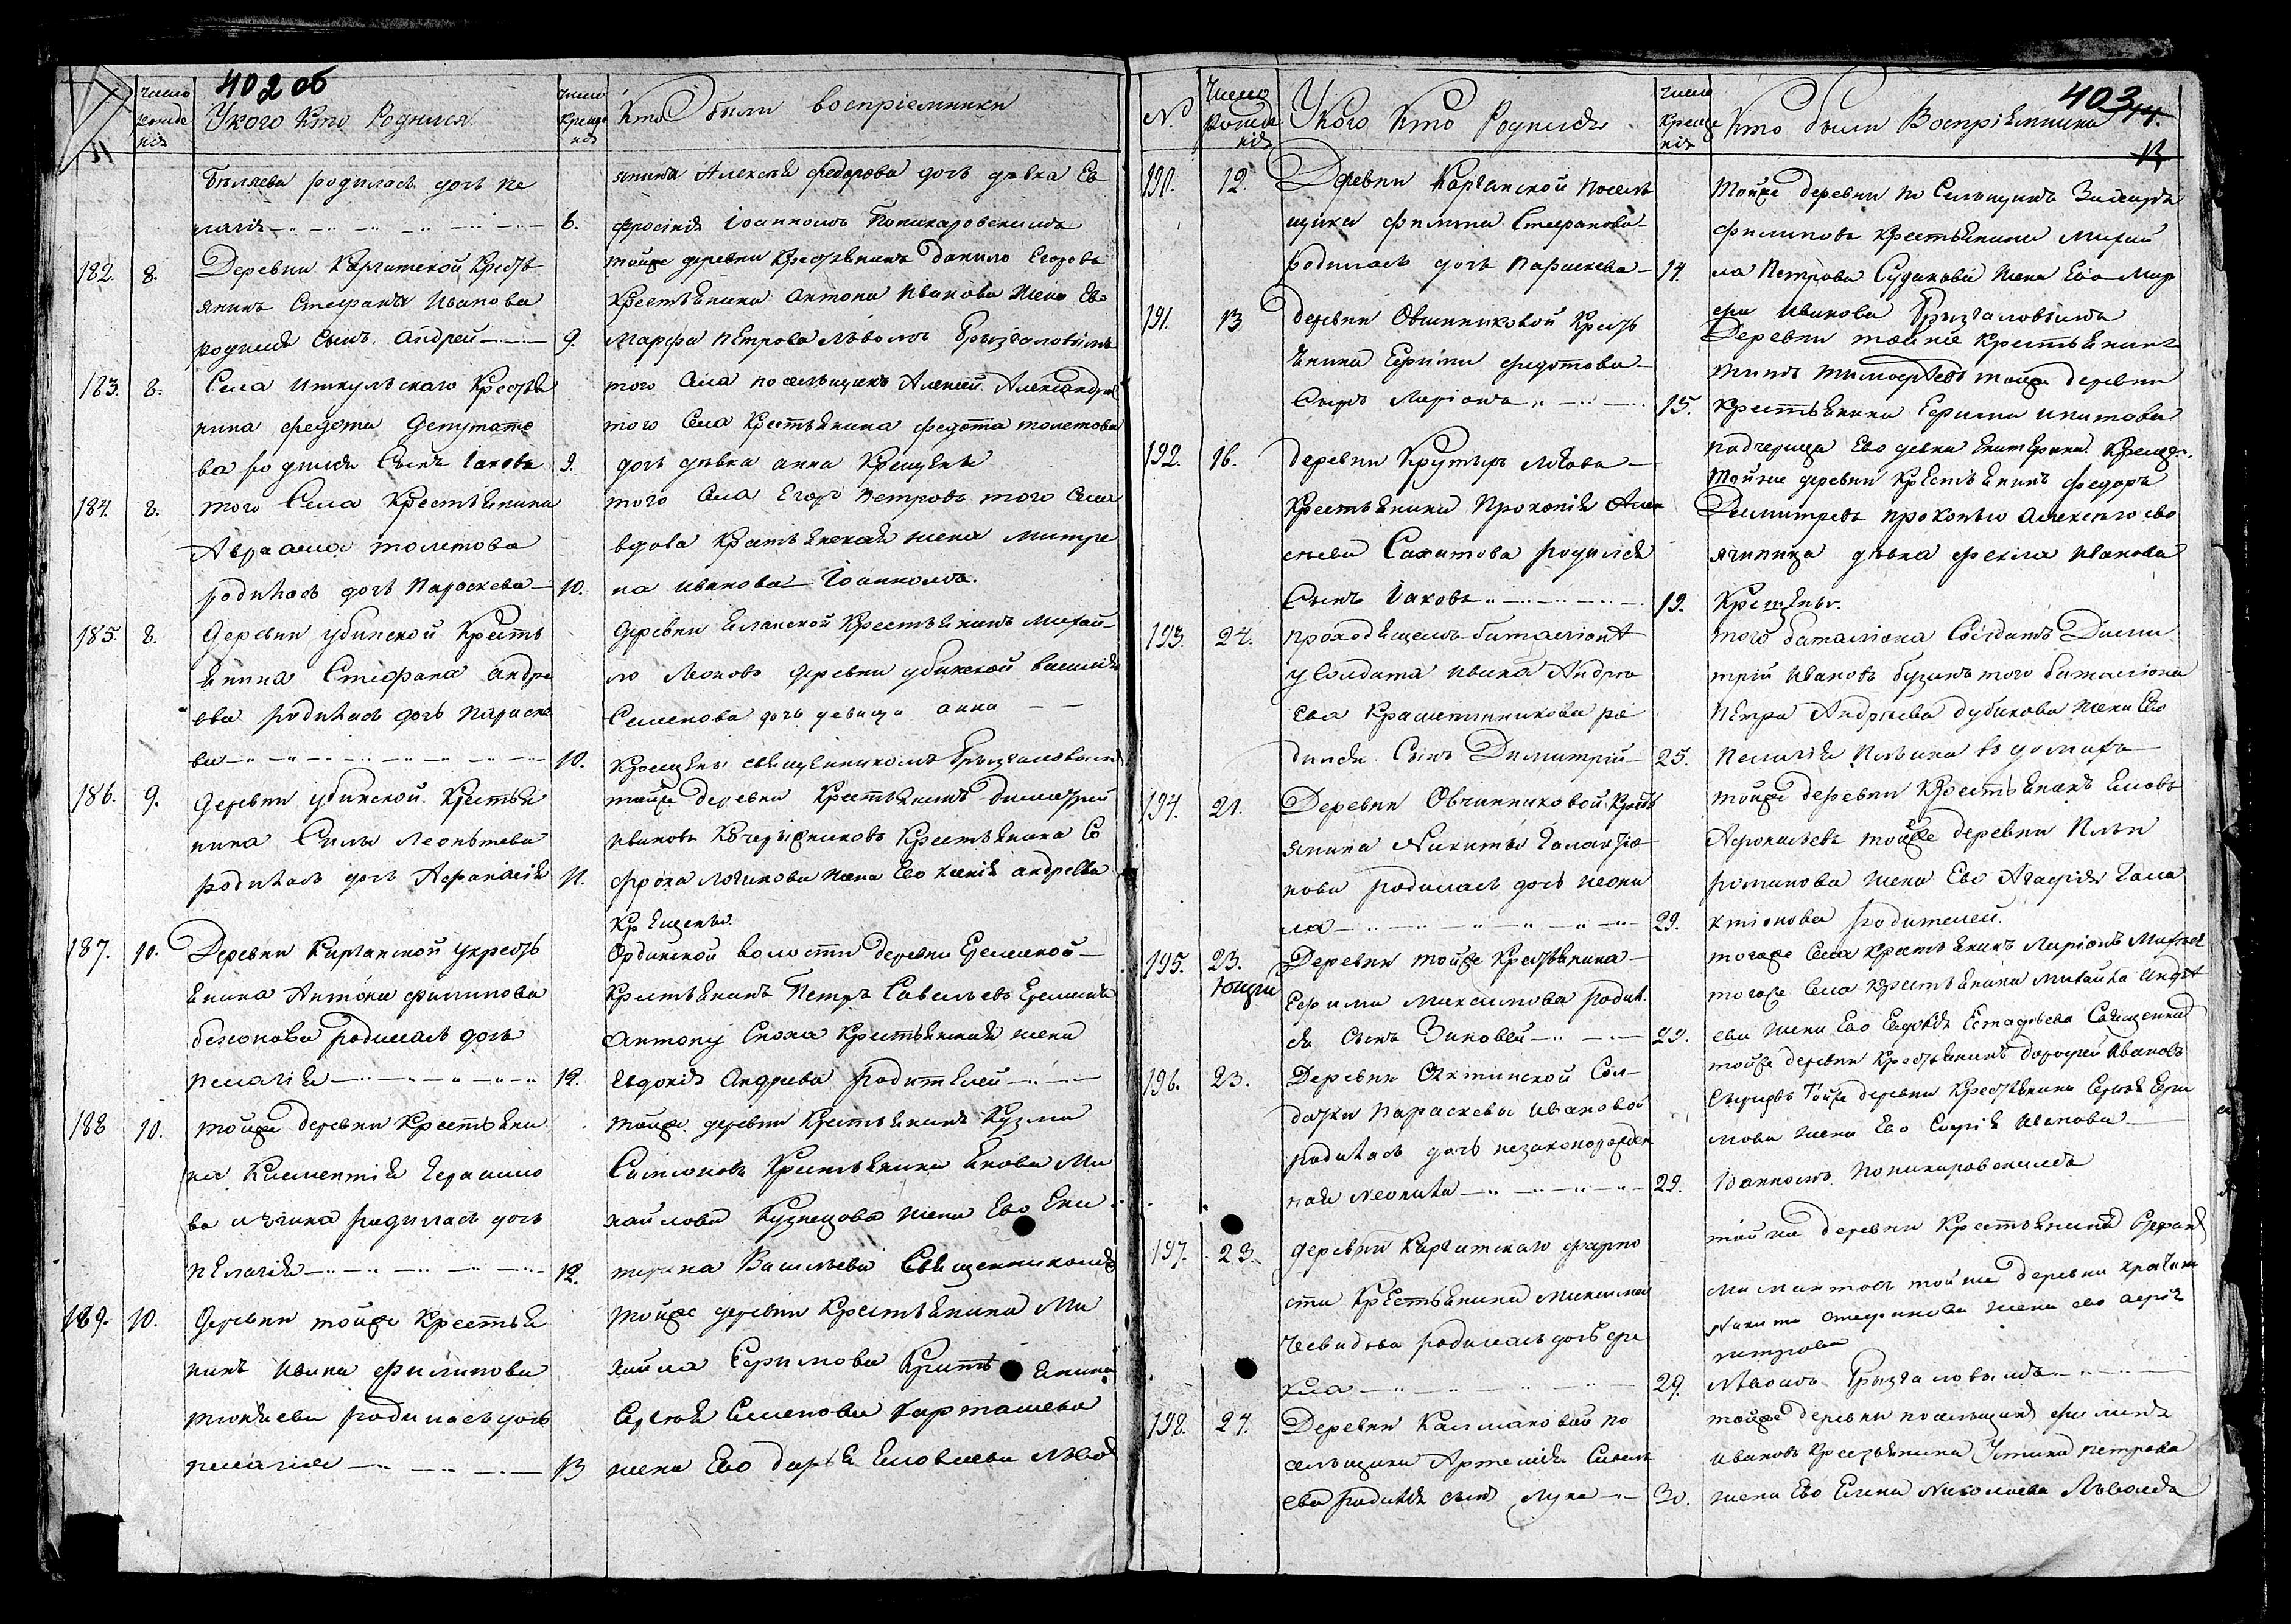 402 об
число рожде нія
У кого Кто Родился
число креще нія
Кто были воспріемники
Беляева родилась дочь Пе
лагія
6.
янина Алексѣя Федорова дочь дѣвка Ев
фросинія Іоанномъ Поникаровскимъ
182. 8.
Деревни Каргатской Кресть
янинъ Стефана Иванова
родился Сынъ Андрей
9.
тойже деревни Крестьянинъ Данило Егоровъ
Крестьянина Антона Иванова жена Ево
Марфа Петрова Львомъ Брызгаловымъ
183. 8.
Села Иткульскаго Крестья
нина Федота Депутато
ва родился Сынъ Іаковъ
9.
того Села посельщикъ Алексей Александров
того Села Крестьянина Федота Толстова
дочь дѣвка Анна Крещены
184. 8.
того Села Крестьянина
Авраама Толстова
родилась дочь Параскева
10.
того Села Егор Петровъ того Села
вдова Крестьянская жена Матре
на Иванова Іоанномъ.
185. 8.
Деревни Убинской Кресть
янина Стефана Андре
ева родилась дочь Параске
ва
10.
Деревни Еланской Крестьянинъ Михай
ло Леоновъ деревни Убинской Василія
Семенова дочь девица Анна
Крещены священникомъ Брызгаловымъ
186. 9.
Деревни Убинской Крестья
нина Силы Леонтьева
родилась дочь Афанасія
11.
тойже деревни Крестьянинъ Димитрій
Ивановъ Крестьянина Со
фрона Логинова жена Ево Ксенія Андреева
Крещены.
187. 10.
Деревни Каргатской Укресть
янина Антона Филипова
родилась дочь
Пелагія
12.
Ординской волости деревни
Крестьянинъ Петръ Савельевъ
Антону Сноха Крестьянская жена
Евдокія Андреева родителей
188 10.
тойже деревни Крестьяни
на Климентія Герасимо
ва родилась дочь
Пелагія
12.
тойже деревни Крестьянинъ Кузма
Крестьянина Якова Ми
хайлова Кузнецова жена Ево Ека
терина Васильева Священникомъ
189. 10.
Деревни тойже Крестья
нинъ Ивана Филипова
родилась дочь
Пелагія
13
тойже деревни Крестьянина Ми
хаила Ефимова Кресть янина
Сергея Семенова Карташева
жена Ево Дарья Львом
403
N.
Число Рожде нія
У Кого Кто Родился
число креще нія
Кто были Воспріемники
190. 12.
Деревни Каргатской посель
щика Филипа Стефанова
родилась дочь Параскева
14.
тойже деревни посельщикъ Захаръ
Филиповъ Крестьянина Михай
ла Петрова Судакова жена Ево Мар
фа Иванова Брызгаловымъ
191. 13
деревни Овчинниковой Кресть
янина Ефима Федотова
Сынъ Ларіонъ
15.
Деревни тойже Крестьянинъ
Титъ Тимофеевъ тойже деревни
крестьянина Ефима Ипатова
падчерица Ево девка Екатерина. Крещен.
192. 16.
деревни Крутыхъ Логова
Крестьянина Прокопія Алек
сеева Сахатова родился
Сынъ Іаковъ
19.
Тойже деревни Крестьянинъ Федоръ
Димитревъ Прокопью Алексееву сво
яченица дѣвка Фекла Иванова
Крещены.
193. 24.
проходящемъ баталіонѣ
у Солдата Ивана Андрея
ева Крашенинникова ро
дился Сынъ Димитрий
25.
того баталіона Солдатъ Дими
трій Ивановъ того баталіона
Петра Андреева Дубикова жена Ево
Пелагія Ильина въ домахъ
194. 21.
Деревни Овчинниковой Крест
янина Никиты Галактіо
нова родилась дочь Леони
ла
29.
тойже деревни Крестьянинъ Еловъ
Афонасьевъ тойже деревни Ильи
романова жена Ево Агафія Гала
ктіонова родителей.
195. 23.
Деревни тойже Крестьянина
Ефима Максимова родил
ся сынъ Зиновей
29.
тогоже Села Крестьянинъ Ларіонъ Михеев
тогоже Села Крестьянина Михайла Андре
ева жена Ево Евдокія Естафьева Священник
196. 23.
Деревни Сектинской Сол
датки Параскевы Ивановой
родилась дочь незаконорожден
ная Леонила
29.
тойже деревни Крестьянинъ Дорофей Ивановъ
тойже деревни Крестьянина Сергея Ефи
мова жена Ево Софія Иванова
Іоанномъ Поникаровскимъ
197. 23.
деревни Каргатскаго форпо
ста Крестьянина Максима
родилась дочь Фе
кла
29.
тойже деревни Крестьянинъ Стефанъ
тойже деревни
Никита Стефанова жена ево
петрова
Львомъ Брызгаловымъ
198. 24.
Деревни Калмаковой по
сельщика Артемія Савель
ева родился сынъ Лука
30.
тойже деревни посельщикъ Филипъ
Ивановъ крестьянина Устина Петрова
жена Ево Елена Николаева Львомъ